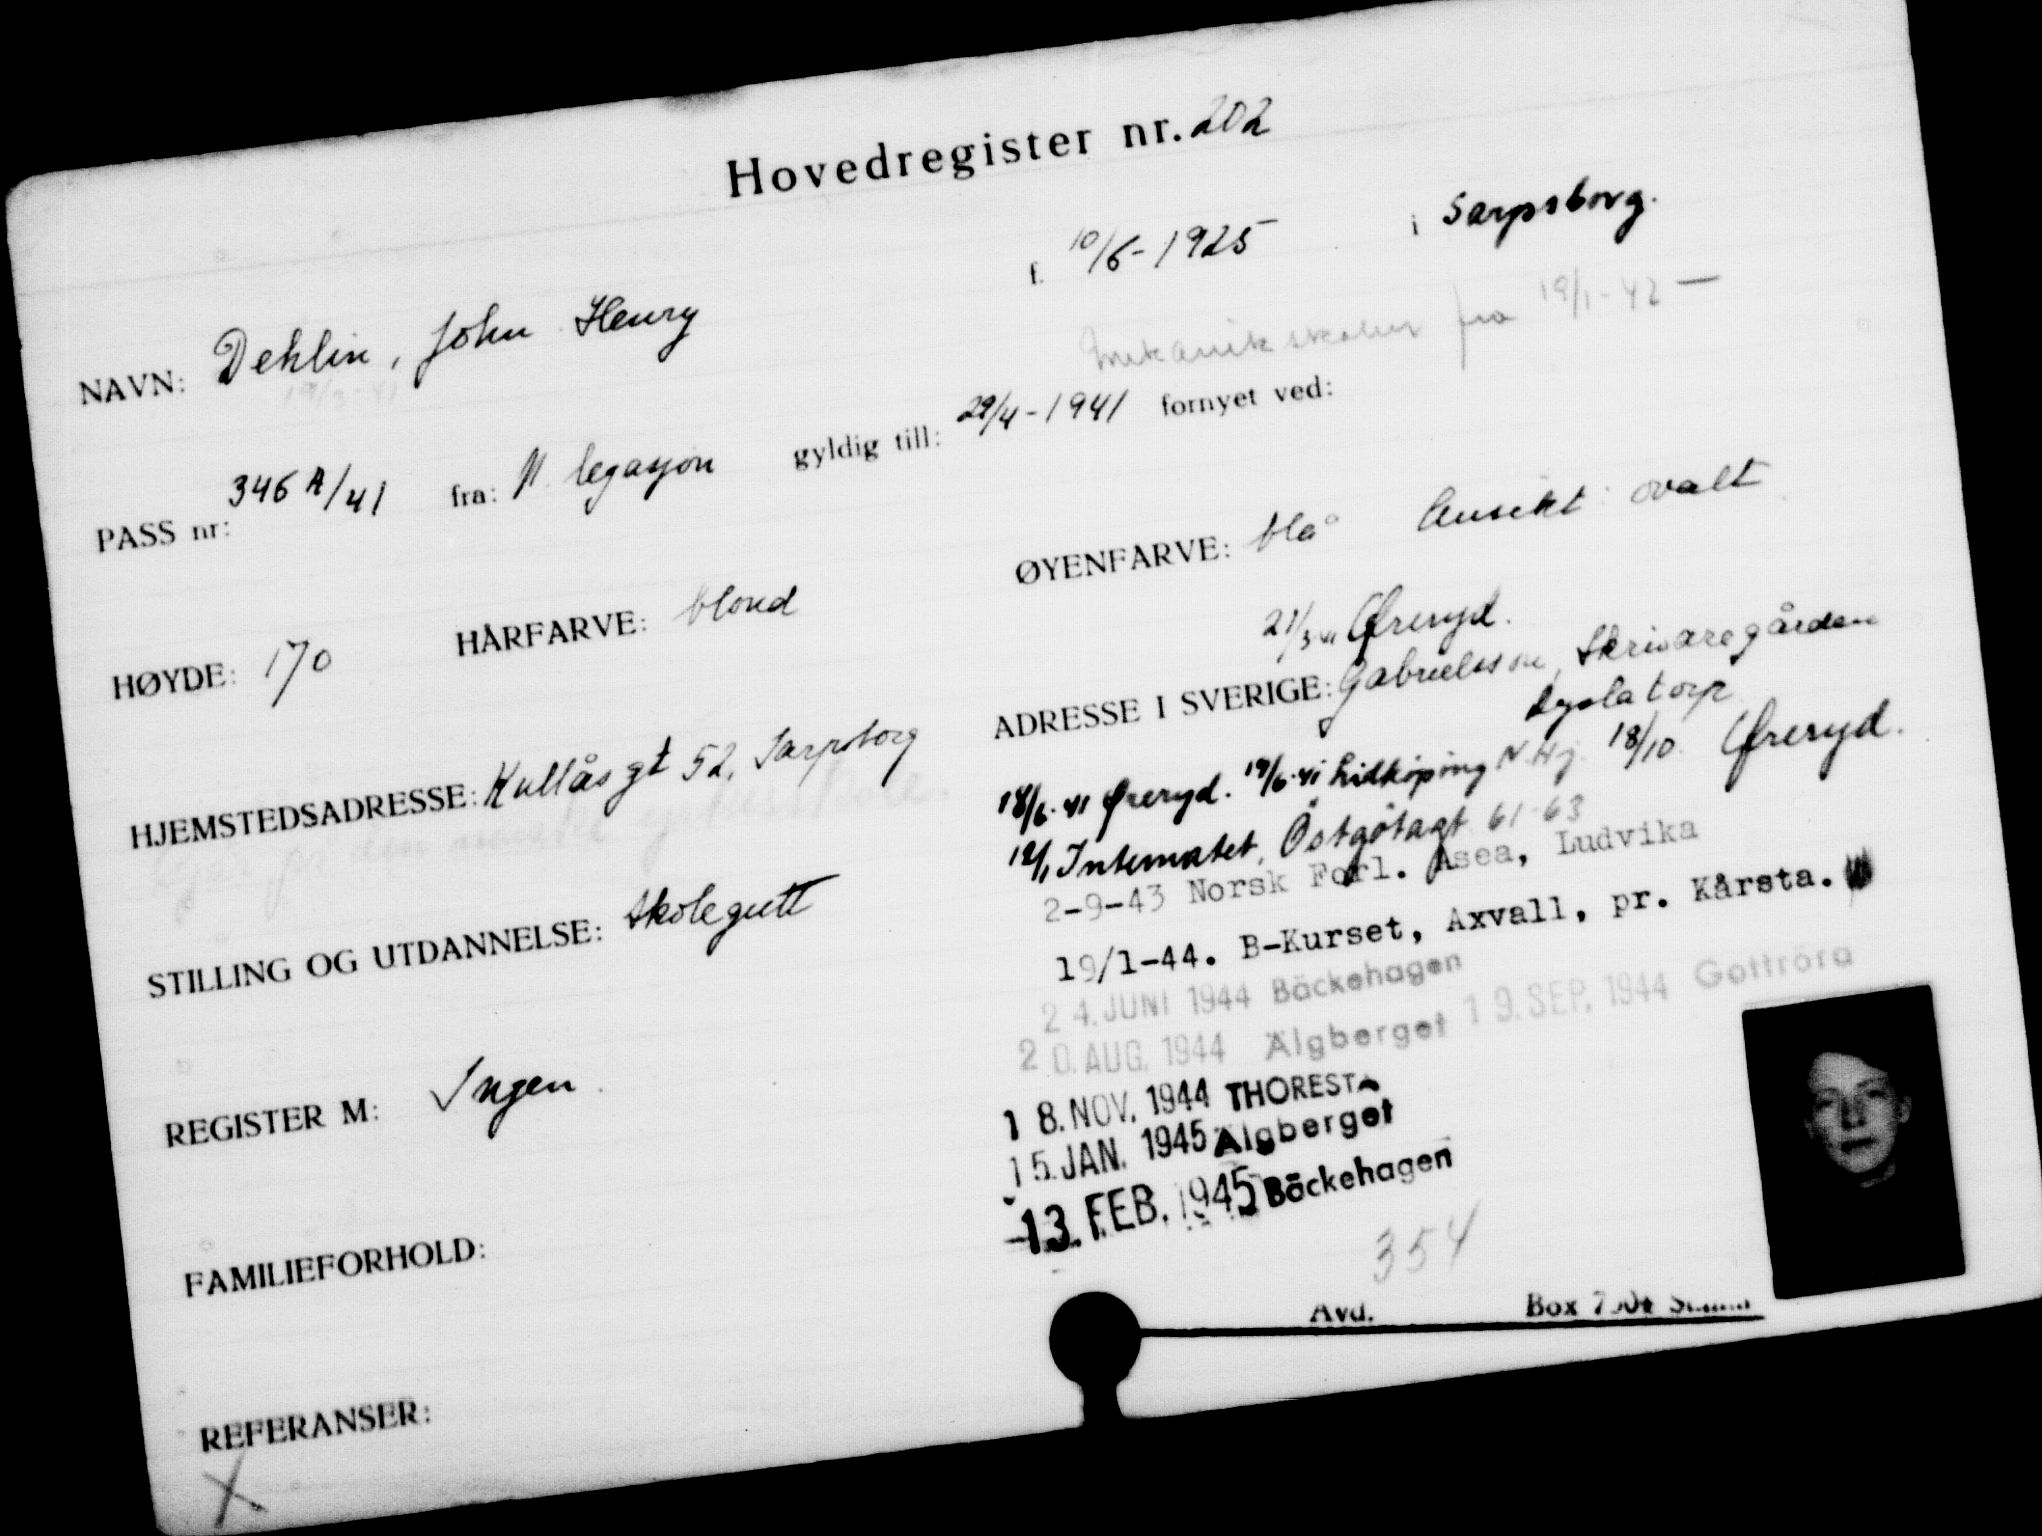 Hovedregister nr. 202
NAVN: Dehlin, John Henry f. 10/6-1925 i Sarpsborg.
19/3-41
Mekanikskolen fra 19/1-42 —
PASS nr: 346 A/41 fra: N. legasjon gyldig till: 29/4-1941 fornyet ved:
HØYDE: 170 HÅRFARVE: blond ØYENFARVE: blå Ansikt: ovalt
21/3 41 Øreryd.
HJEMSTEDSADRESSE: Kullåsgt 52, Sarpsborg
ADRESSE I SVERIGE: Gabrielsson, Skrivaregården
18/6.41 Øreryd. 19/6.41 Lidköping 18/10. Øreryd.
12/1 Internatet, Östgötagt 61-63
2-9-43 Norsk Forl. Asea, Ludvika
19/1-44. B-Kurset, Axvall, pr. Kårsta.
STILLING OG UTDANNELSE: Skolegutt
24. JUNI 1944 Bäckehagen
20. AUG. 1944 Älgberget 19. SEP. 1944 Gottröra
18. NOV. 1944 THORESTA
15. JAN. 1945 Älgberget
-13. FEB. 1945 Bäckehagen
REGISTER M: Ingen.
FAMILIEFORHOLD:
354
Avd. Box
REFERANSER:
X